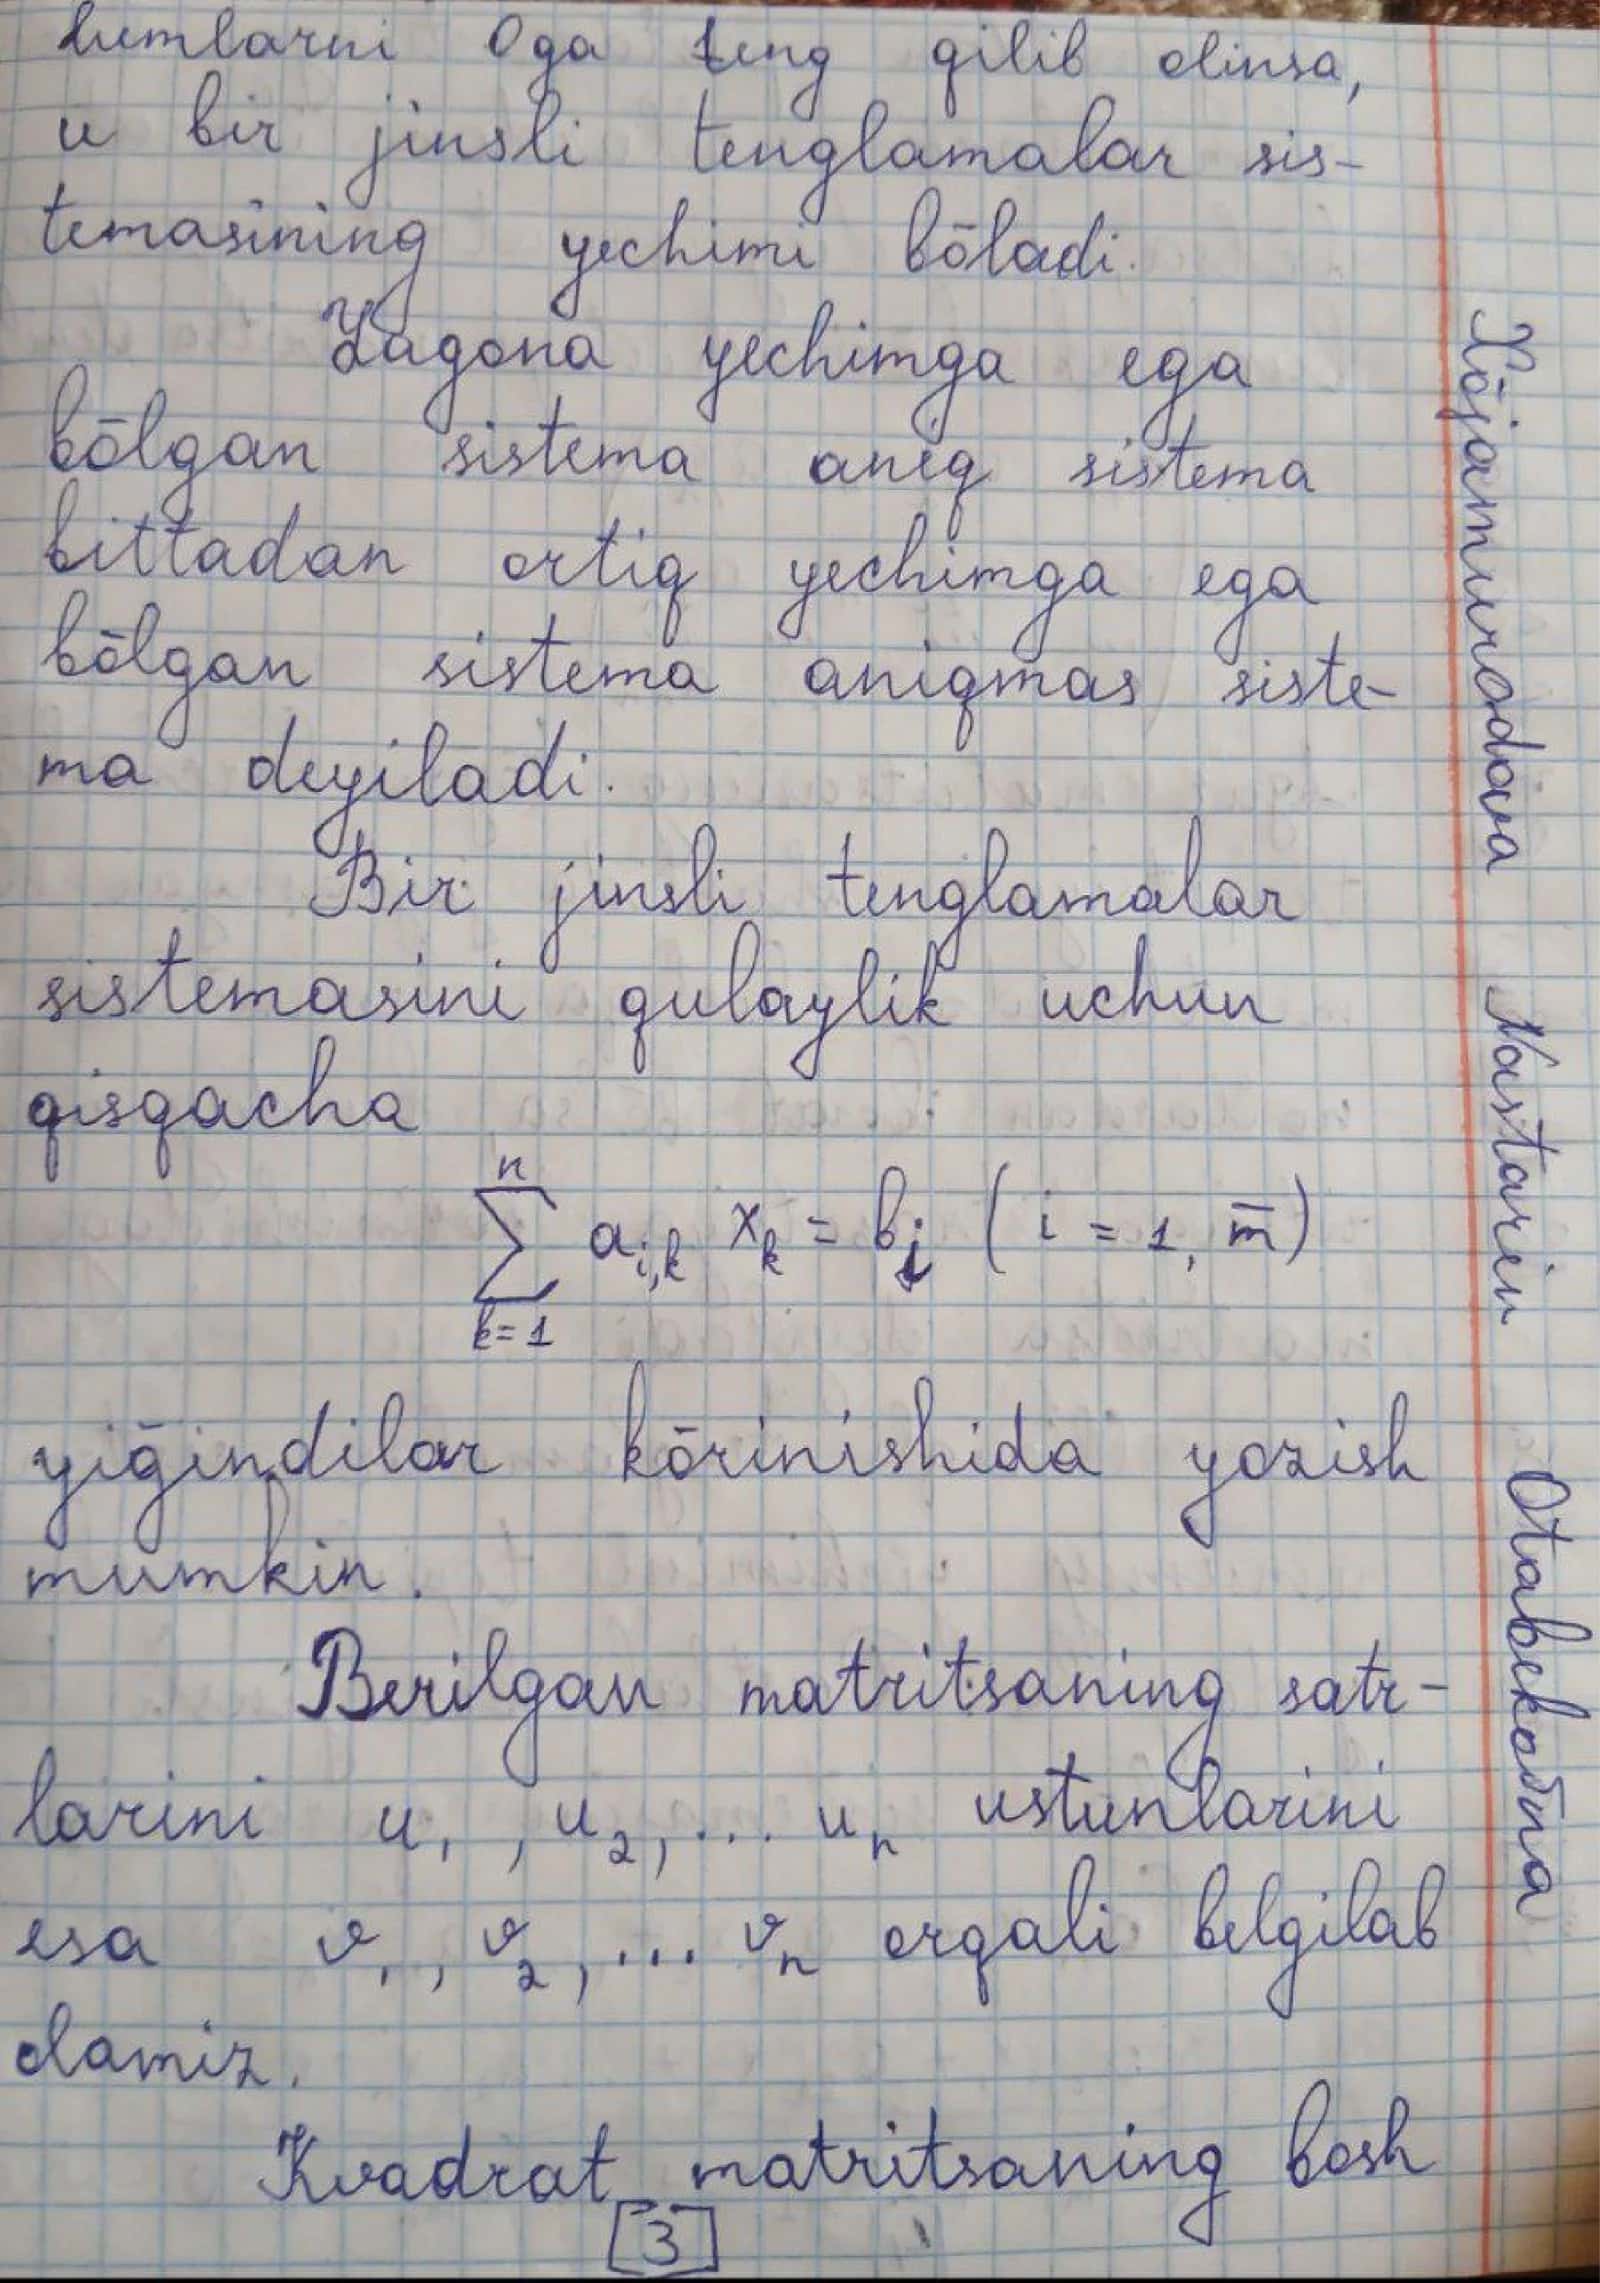 lumlarni 0ga teng qilib olinsa,
u bir jinsli tenglamalar sis-
temasining yechimi bōladi.
Yagona yechimga ega
bōlgan sistema aniq sistema
bittadan ortiq yechimga ega
bōlgan sistema aniqmas siste-
ma deyiladi.
Bir jinsli tenglamalar
sistemasini qulaylik uchun
qisqacha
n
∑ a_{i,k} x_k = b_i ( i = 1, m̅ )
k=1
yiḡindilar kōrinishida yozish
mumkin.
Berilgan matritsaning satr-
larini u₁, u₂, ... uₙ ustunlarini
esa v₁, v₂, ... vₙ orqali belgilab
olamiz.
Kvadrat matritsaning bosh
3
Xōjamuradova Nastarin Otabekovna